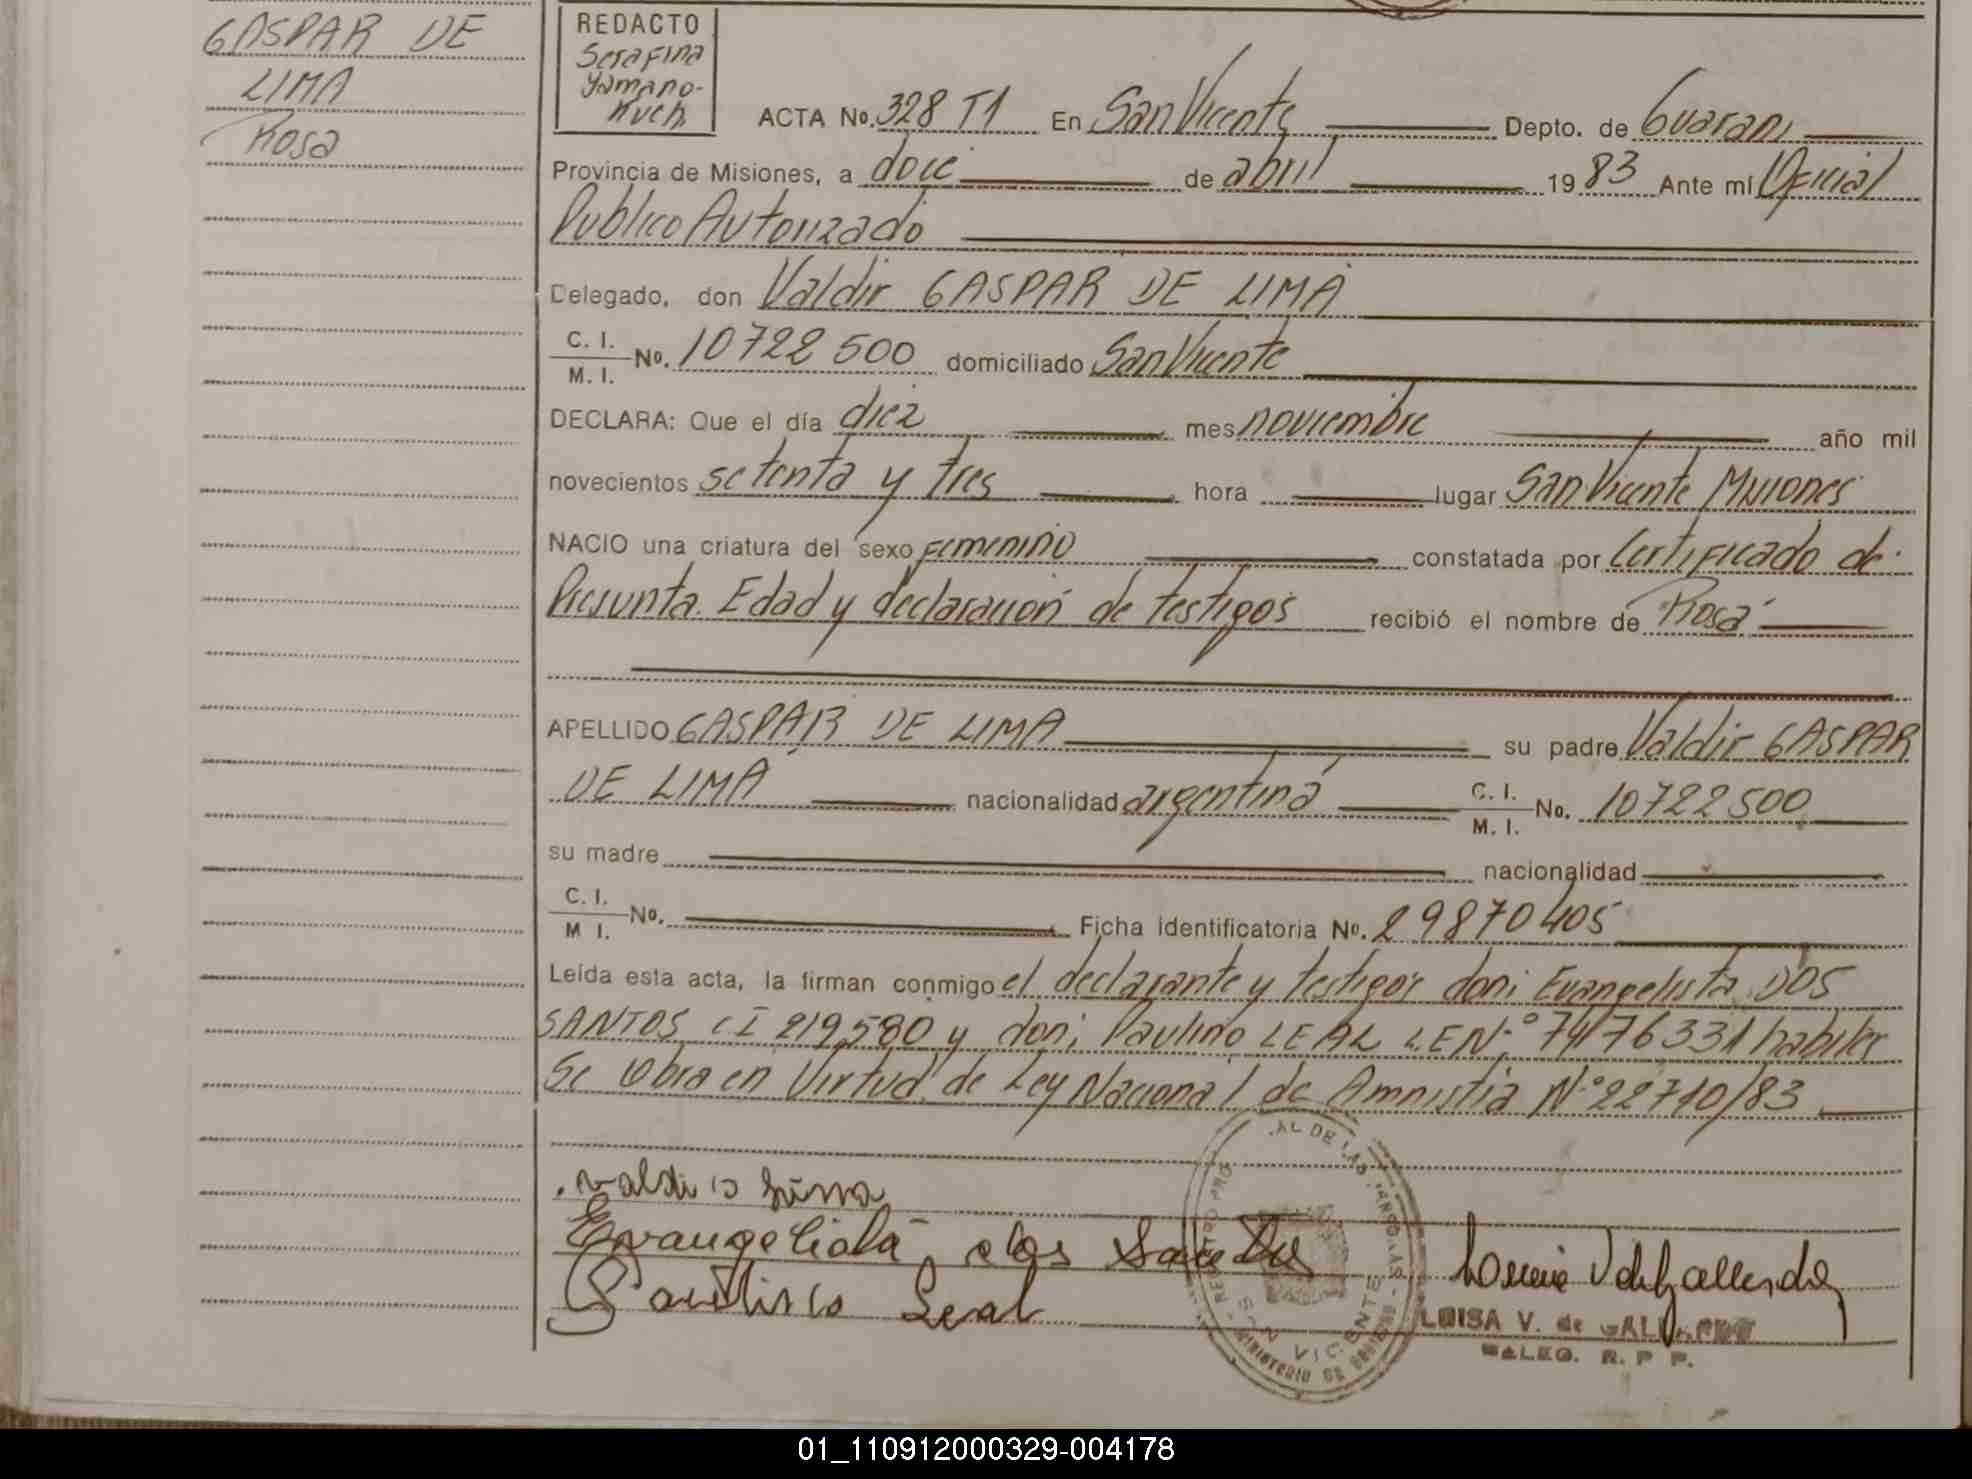 GASPAR DE
LIMA
Rosa
REDACTO
Serafina
Yamano-
Kuch
ACTA No. 328 T1 En San Vicente Depto. de Guarani
Provincia de Misiones, a doce de abril 19 83 Ante mí Oficial
Publico Autorizado
Delegado, don Valdir GASPAR DE LIMA
C. I.
M. I. No. 10722500 domiciliado San Vicente
DECLARA: Que el día diez mes noviembre año mil
novecientos setenta y tres hora lugar San Vicente Misiones
NACIO una criatura del sexo Femenino constatada por Certificado de
Presunta Edad y declaración de testigos recibió el nombre de Rosa
APELLIDO GASPAR DE LIMA su padre Valdir GASPAR
DE LIMA nacionalidad argentina C. I.
M. I. No. 10722500
su madre nacionalidad
C. I.
M I. No. Ficha Identificatoria No. 29870405
Leída esta acta, la firman conmigo el declarante y testigos don: Evangelista DOS
SANTOS C I 219.580 y don: Paulino LEAL L E N.° 7476331 habiles
Se Obra en Virtud de Ley Nacional de Amnistia N° 22710/83
Evangelista dos Santos
Leal
SAN VICENTE
LUISA V. de
R. P P.
01_110912000329-004178